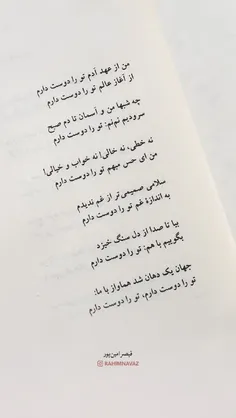 من از عهد آدم تو را دوست دارم
از آغاز عالم تو را دوست دارم
چه شبها من و آسمان تا دم صبح
سرودیم نم‌نم: تو را دوست دارم
نه خطی، نه خالی! نه خواب و خیالی!
من ای حس مبهم تو را دوست دارم
سلامی صمیمی‌تر از غم ندیدم
به اندازهٔ غم تو را دوست دارم
بیا تا صدا از دل سنگ خیزد
بگوییم با هم: تو را دوست دارم
جهان یک دهان شد هم‌آواز با ما:
تو را دوست دارم، تو را دوست دارم
قیصر امین‌پور
RAHIMNAVAZ